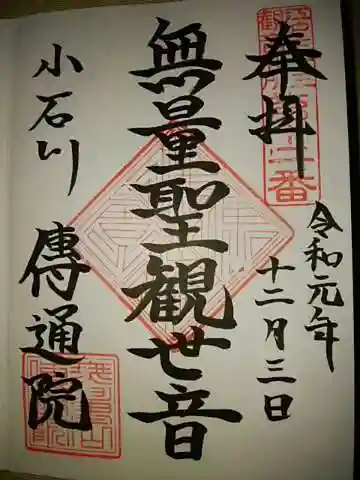 奉拝
令和元年
十二月三日
無量聖観世音
小石川
傳通院